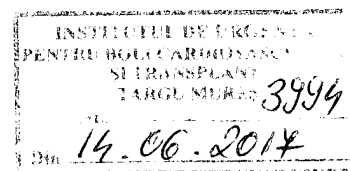 INSTITUTUL DE URGENȚĂ
PENTRU BOLI CARDIOVASCU
ȘI TRANSPLANT
TARGU MUREȘ
3994
Din 14.06.2017